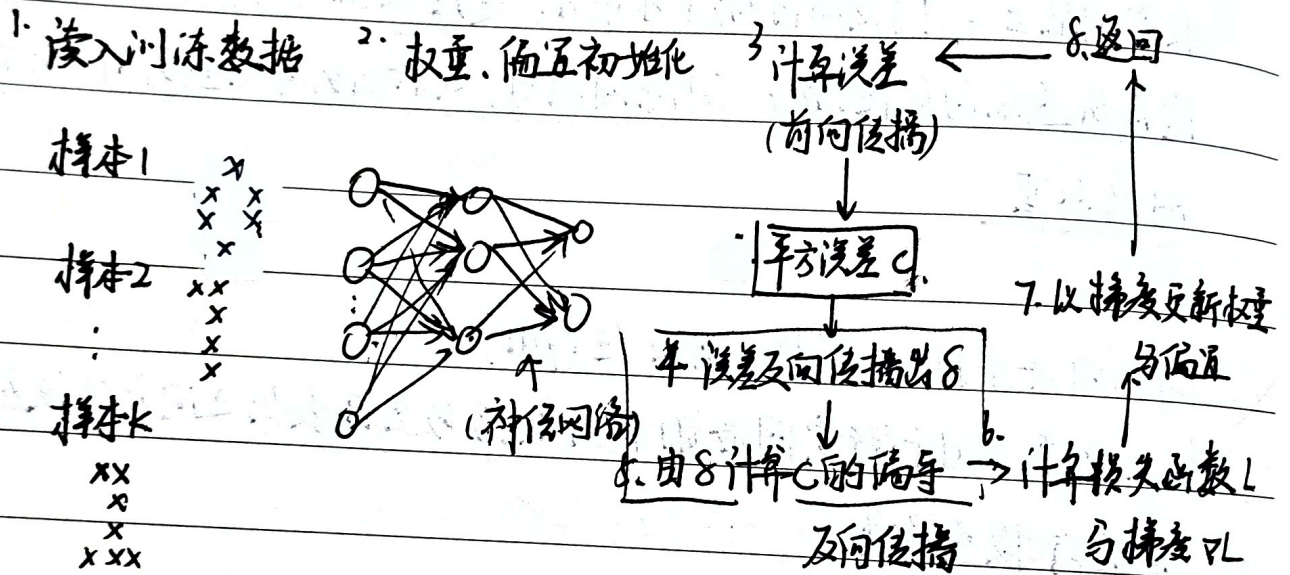 1. 读入训练数据
2. 权重、偏置初始化
3 计算误差
(前向传播)
8.返回
样本1
样本2
样本k
(神经网络)
平方误差C
4. 误差反向传播出δ
5. 由δ计算C的偏导
反向传播
6.
计算损失函数L
与梯度∇L
7. 以梯度更新权重
与偏置